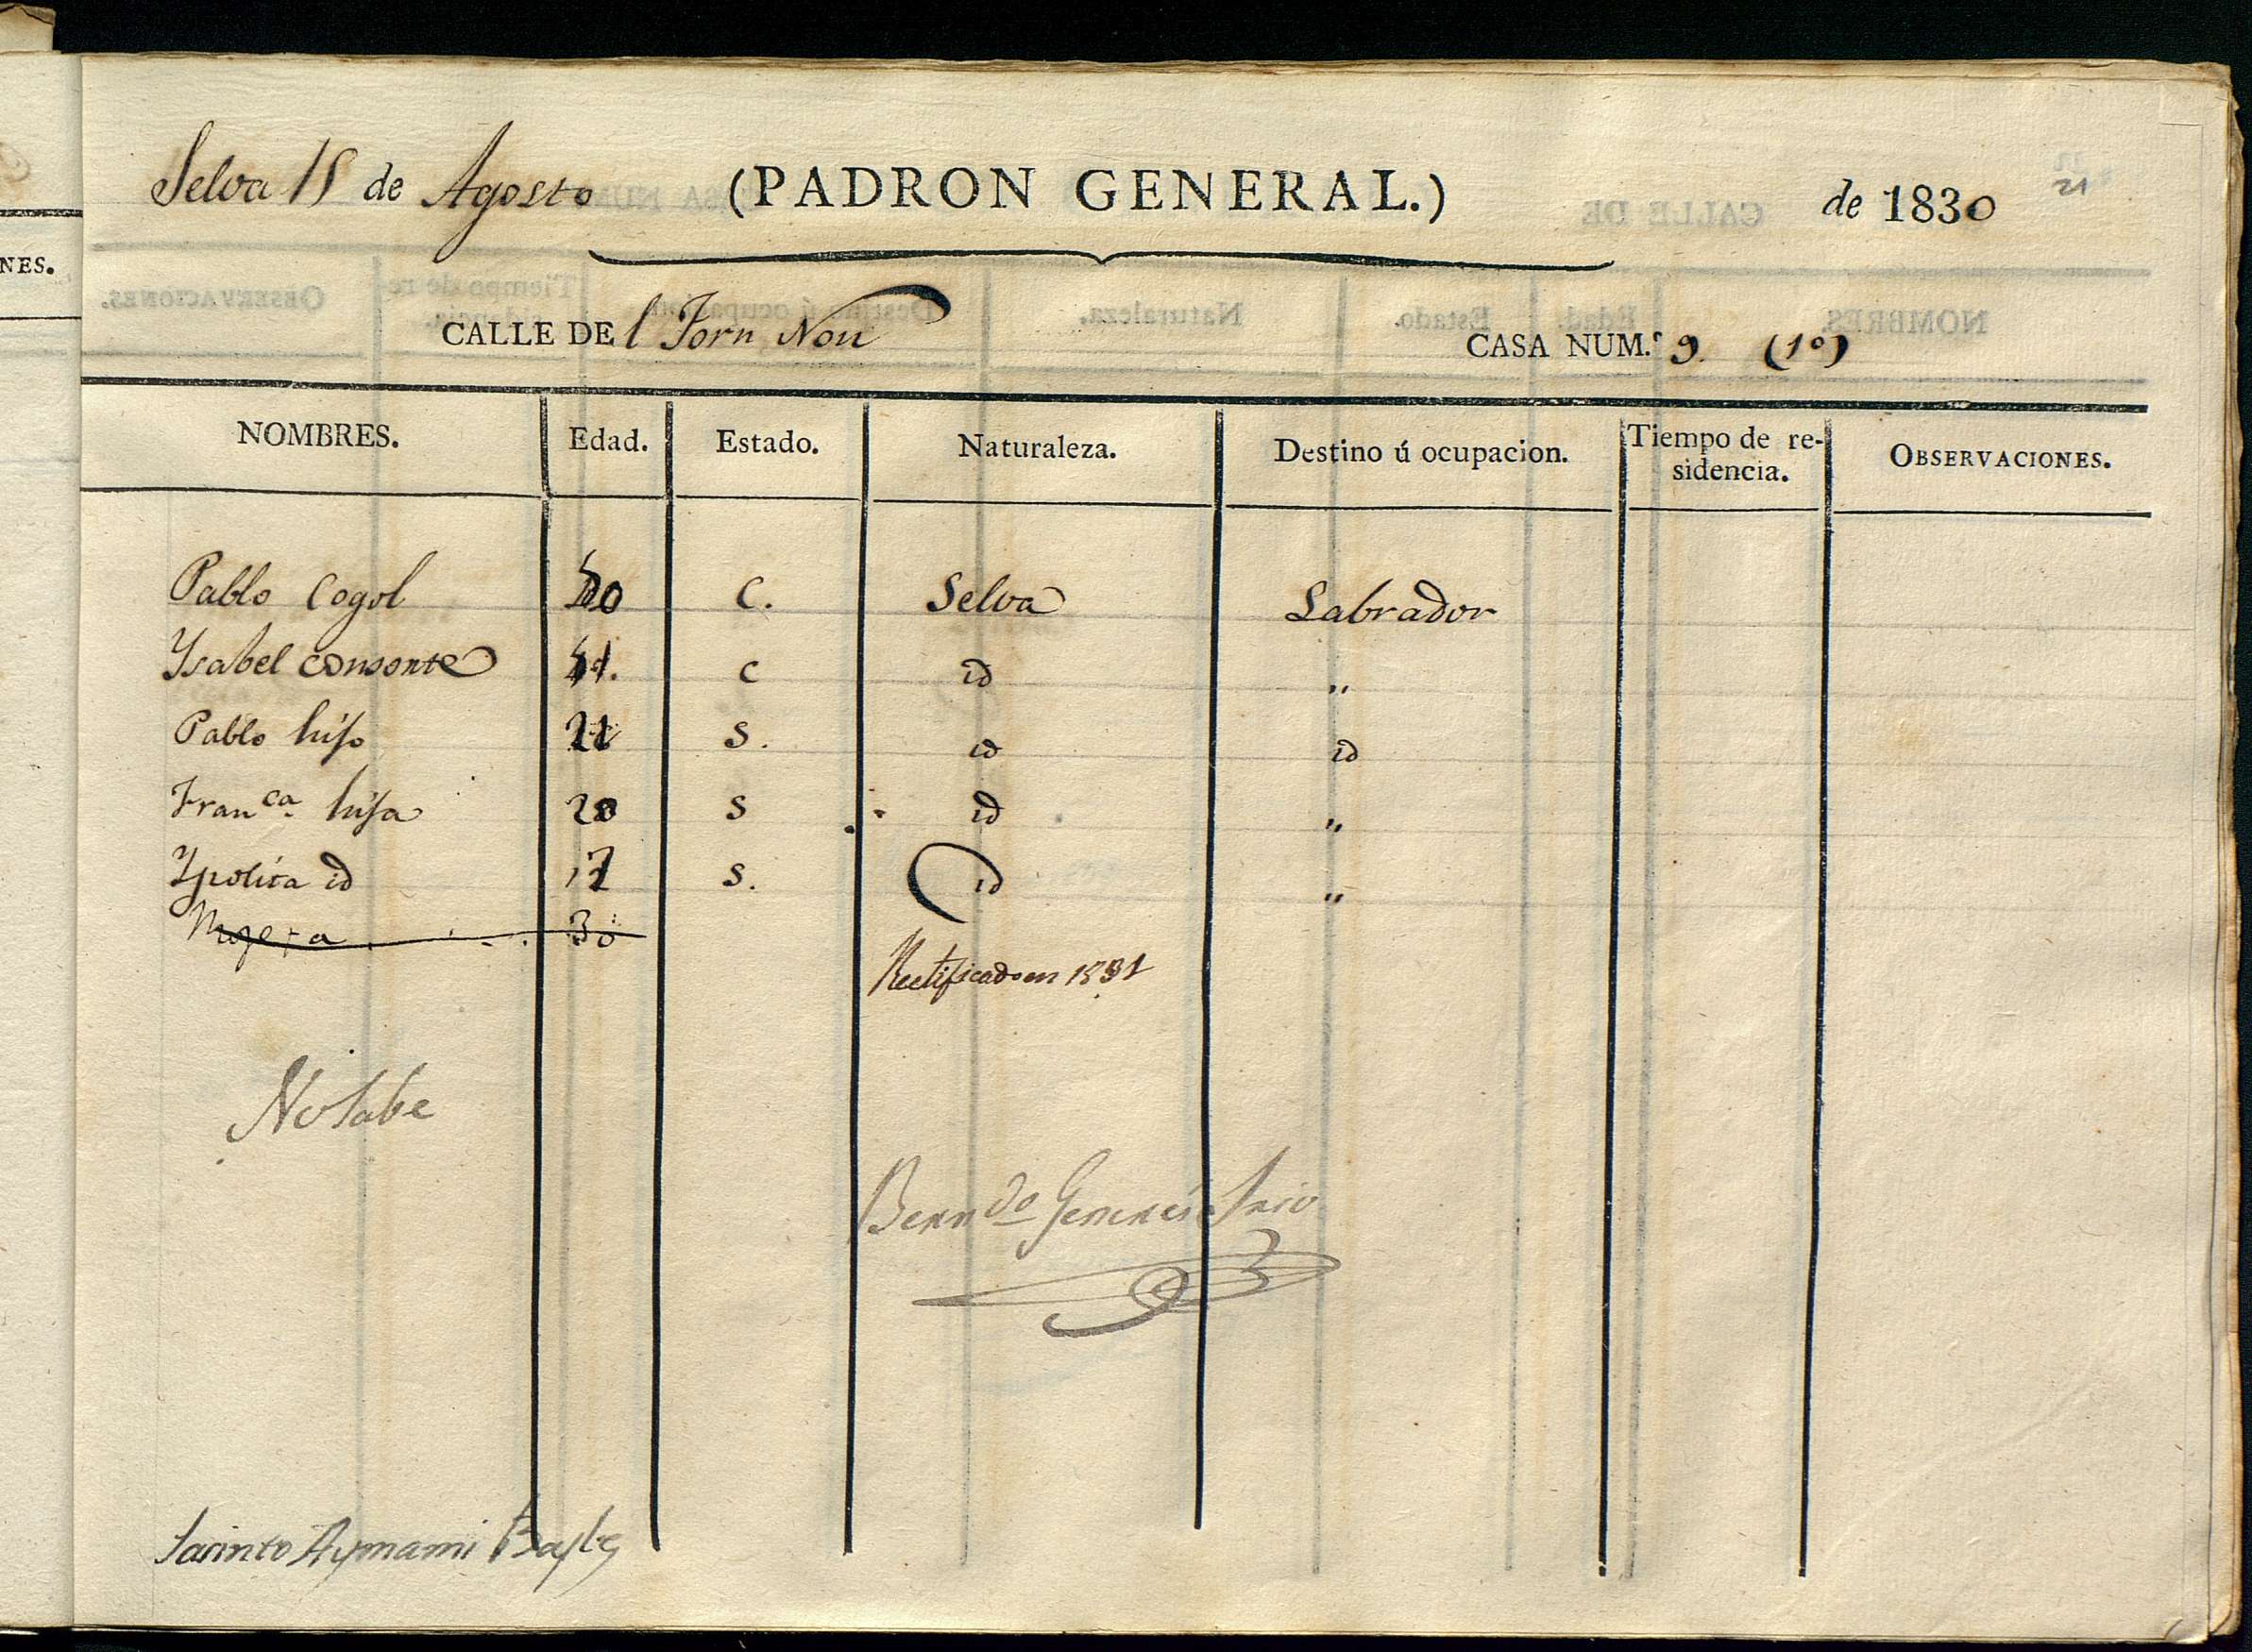 NES.
Selva 15 de Agosto (PADRON GENERAL.) de 1830 21
CALLE DEl Forn Nou CASA NUM.º 9. (1º)
NOMBRES. Edad. Estado. Naturaleza. Destino ú ocupacion. Tiempo de re- OBSERVACIONES.
sidencia.
Pablo Cogol 50 C. Selva Labrador
Ysabel consorte 51. C id "
Pablo hijo S. id id
Fran.ca hija 20 S id "
Ypolita id 17 S. id "
30
Rectificado en 1831
No sabe
Bern.do Srio
Jacinto Aymami Bayle